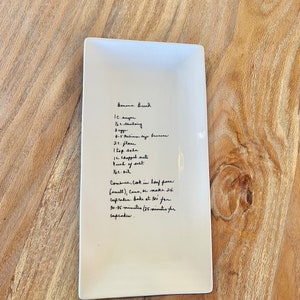 Banana Bread
1 C. sugar
½ c. shortening
2 eggs
4-5 medium size bananas
2 c. flour
1 tsp soda
½ c. chopped nuts
Pinch of salt
Combine. Cook in loaf pans
(small), Cans, or make 24
cupcakes. Bake at 350 for
30-35 minutes (25 minutes for
cupcakes